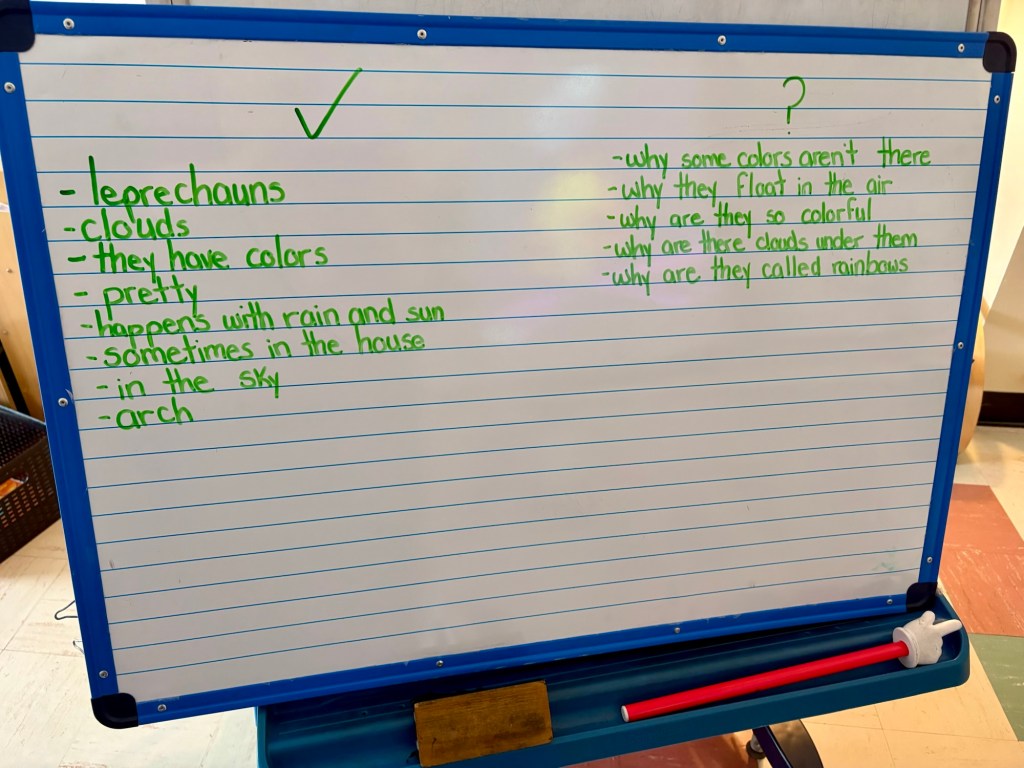 ✓
- leprechauns
- clouds
- they have colors
- pretty
- happens with rain and sun
- sometimes in the house
- in the sky
- arch
?
- why some colors aren't there
- why they float in the air
- why are they so colorful
- why are there clouds under them
- why are they called rainbows